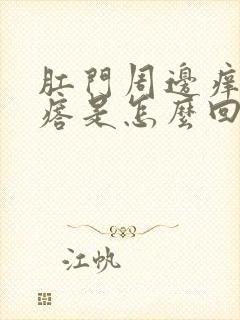 肛門周邊痒
痞是怎麼回
江帆